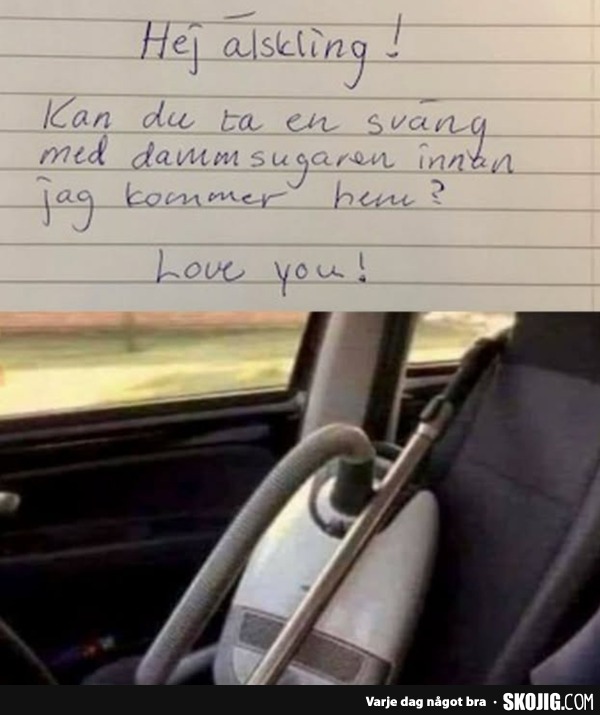 Hej älskling!
Kan du ta en sväng
med dammsugaren innan
jag kommer hem?
Love you!
Varje dag något bra · SKOJIG.COM